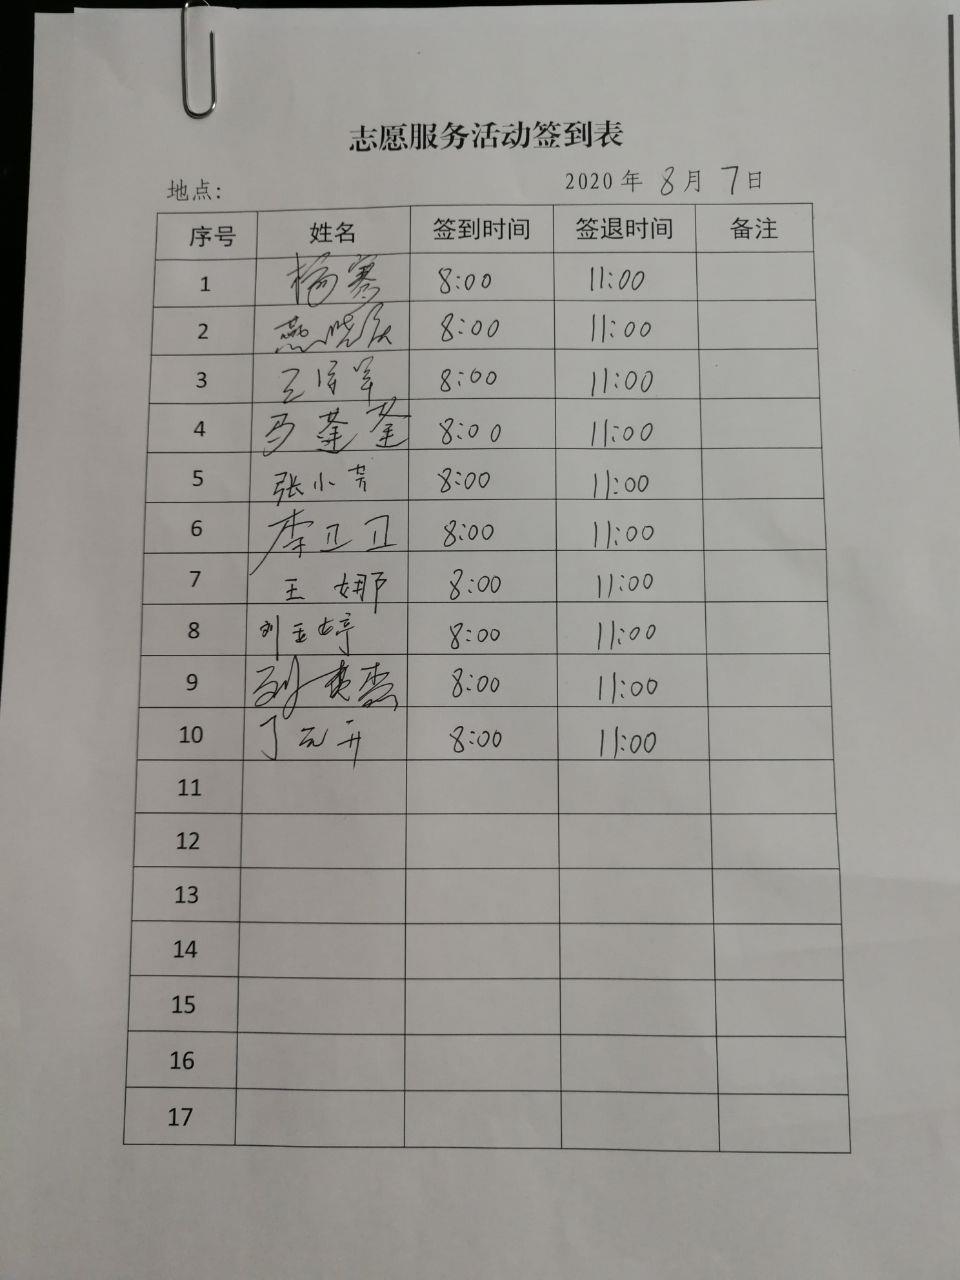 志愿服务活动签到表
地点: 2020 年 8 月 7 日
序号 姓名 签到时间 签退时间 备注
1 杨赛 8:00 11:00
2 燕晓 8:00 11:00
3 王 军 8:00 11:00
4 马蓬莲 8:00 11:00
5 张小芳 8:00 11:00
6 李卫卫 8:00 11:00
7 王娜 8:00 11:00
8 刘玉婷 8:00 11:00
9 刘 8:00 11:00
10 丁元开 8:00 11:00
11
12
13
14
15
16
17